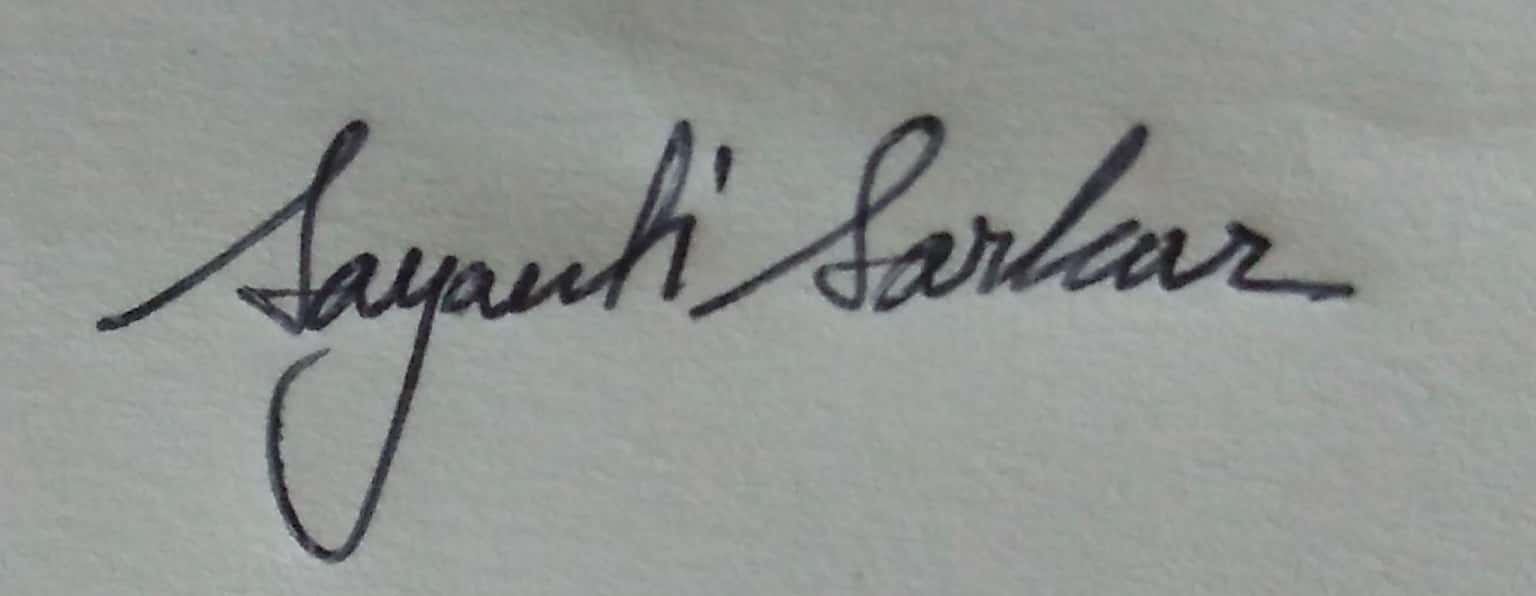 Sayanti Sarkar